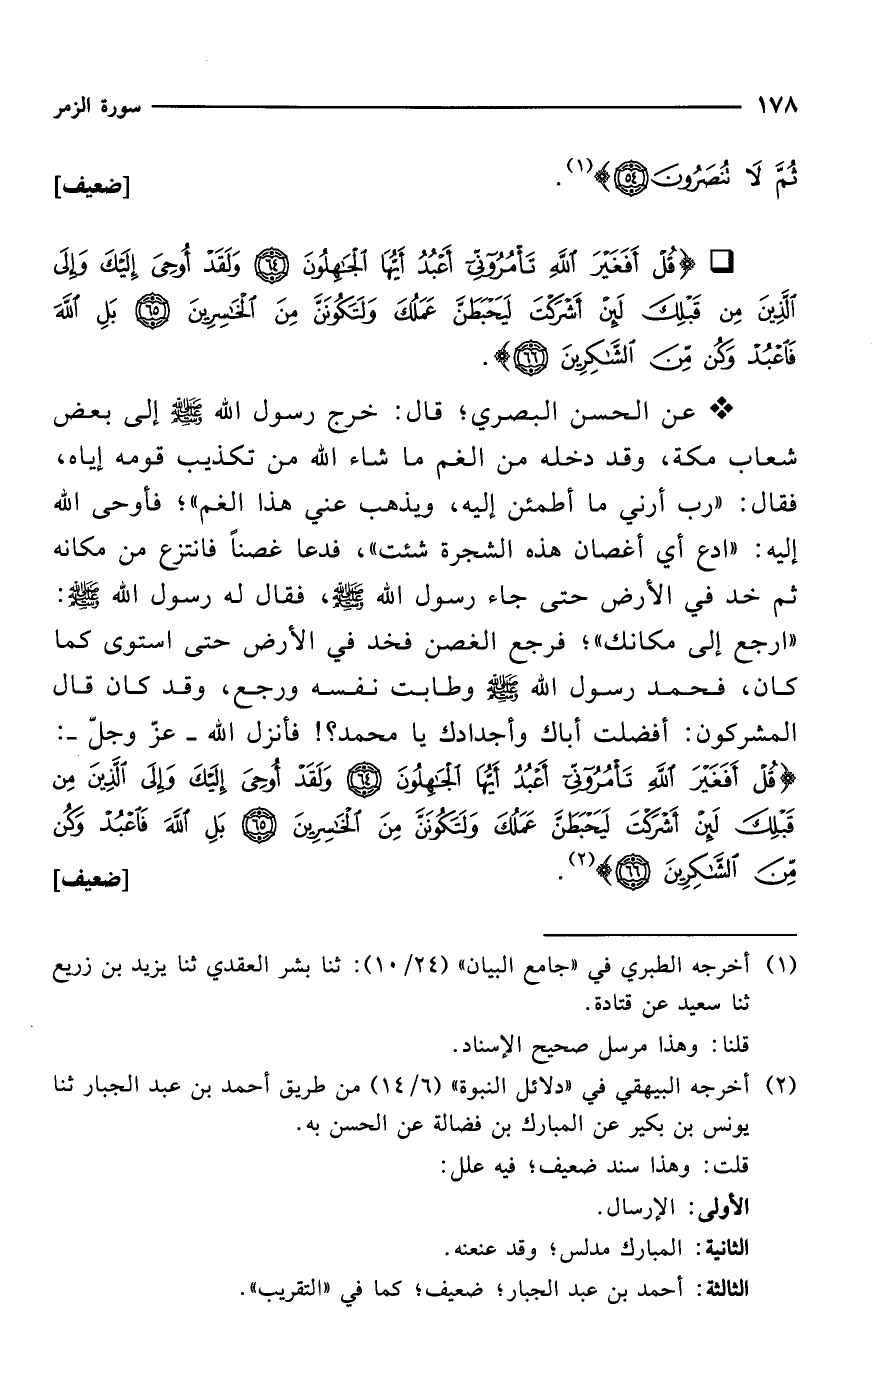 ١٧٨ سورة الزمر
ثُمَّ لَا نُنصَرُونَ ﴿٥٤﴾﴾(١). [ضعيف]
❏ ﴿قُلْ أَفَغَيْرَ ٱللَّهِ تَأْمُرُوٓنِّىٓ أَعْبُدُ أَيُّهَا ٱلْجَٰهِلُونَ ﴿٦٤﴾ وَلَقَدْ أُوحِىَ إِلَيْكَ وَإِلَى
ٱلَّذِينَ مِن قَبْلِكَ لَئِنْ أَشْرَكْتَ لَيَحْبَطَنَّ عَمَلُكَ وَلَتَكُونَنَّ مِنَ ٱلْخَٰسِرِينَ ﴿٦٥﴾ بَلِ ٱللَّهَ
فَٱعْبُدْ وَكُن مِّنَ ٱلشَّٰكِرِينَ ﴿٦٦﴾﴾.
❖ عن الحسن البصري؛ قال: خرج رسول الله ﷺ إلى بعض
شعاب مكة، وقد دخله من الغم ما شاء الله من تكذيب قومه إياه،
فقال: «رب أرني ما أطمئن إليه، ويذهب عني هذا الغم»؛ فأوحى الله
إليه: «ادع أي أغصان هذه الشجرة شئت»، فدعا غصناً فانتزع من مكانه
ثم خد في الأرض حتى جاء رسول الله ﷺ، فقال له رسول الله ﷺ:
«ارجع إلى مكانك»؛ فرجع الغصن فخد في الأرض حتى استوى كما
كان، فحمد رسول الله ﷺ وطابت نفسه ورجع، وقد كان قال
المشركون: أفضلت أباك وأجدادك يا محمد؟! فأنزل الله ـ عزّ وجلّ ـ:
﴿قُلْ أَفَغَيْرَ ٱللَّهِ تَأْمُرُوٓنِّىٓ أَعْبُدُ أَيُّهَا ٱلْجَٰهِلُونَ ﴿٦٤﴾ وَلَقَدْ أُوحِىَ إِلَيْكَ وَإِلَى ٱلَّذِينَ مِن
قَبْلِكَ لَئِنْ أَشْرَكْتَ لَيَحْبَطَنَّ عَمَلُكَ وَلَتَكُونَنَّ مِنَ ٱلْخَٰسِرِينَ ﴿٦٥﴾ بَلِ ٱللَّهَ فَٱعْبُدْ وَكُن
مِّنَ ٱلشَّٰكِرِينَ ﴿٦٦﴾﴾(٢). [ضعيف]
(١) أخرجه الطبري في «جامع البيان» (١٠/٢٤): ثنا بشر العقدي ثنا يزيد بن زريع
ثنا سعيد عن قتادة.
قلنا: وهذا مرسل صحيح الإسناد.
(٢) أخرجه البيهقي في «دلائل النبوة» (١٤/٦) من طريق أحمد بن عبد الجبار ثنا
يونس بن بكير عن المبارك بن فضالة عن الحسن به.
قلت: وهذا سند ضعيف؛ فيه علل:
الأولى: الإرسال.
الثانية: المبارك مدلس؛ وقد عنعنه.
الثالثة: أحمد بن عبد الجبار؛ ضعيف؛ كما في «التقريب».